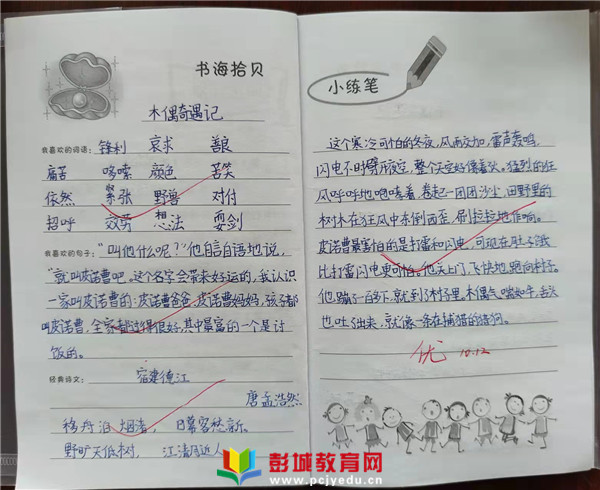 书海拾贝
木偶奇遇记
我喜欢的词语：锋利 哀求 善良
痛苦 哆嗦 颜色 苦笑
依然 紧张 野兽 对付
招呼 效劳 想法 耍剑
我喜欢的句子：“叫他什么呢？”他自言自语地说，
“就叫皮诺曹吧。这个名字会带来好运的，我认识
一家叫皮诺曹的：皮诺曹爸爸，皮诺曹妈妈，孩子都
叫皮诺曹，全家都过得很好，其中最富的一个是讨
饭的。
经典诗文：宿建德江
唐孟浩然
移舟泊烟渚，日暮客愁新。
野旷天低树，江清月近人
小练笔
这个寒冷可怕的冬夜，风雨交加，雷声轰鸣，
闪电不时劈开夜空，整个天空好像着火。猛烈的狂
风呼呼地咆哮着，卷起一团团沙尘，田野里的
树木在狂风中东倒西歪，吱拉拉地作响。
皮诺曹最害怕的是打雷和闪电，可现在肚子饿
比打雷闪电更可怕。他关上门，飞快地跑向村子。
他蹦了一百多下，就到了村子里。木偶气喘如牛，舌头
也吐了出来，就像一条在捕猎的猎狗。
优 10.12
彭城教育网
www.pcjyedu.cn